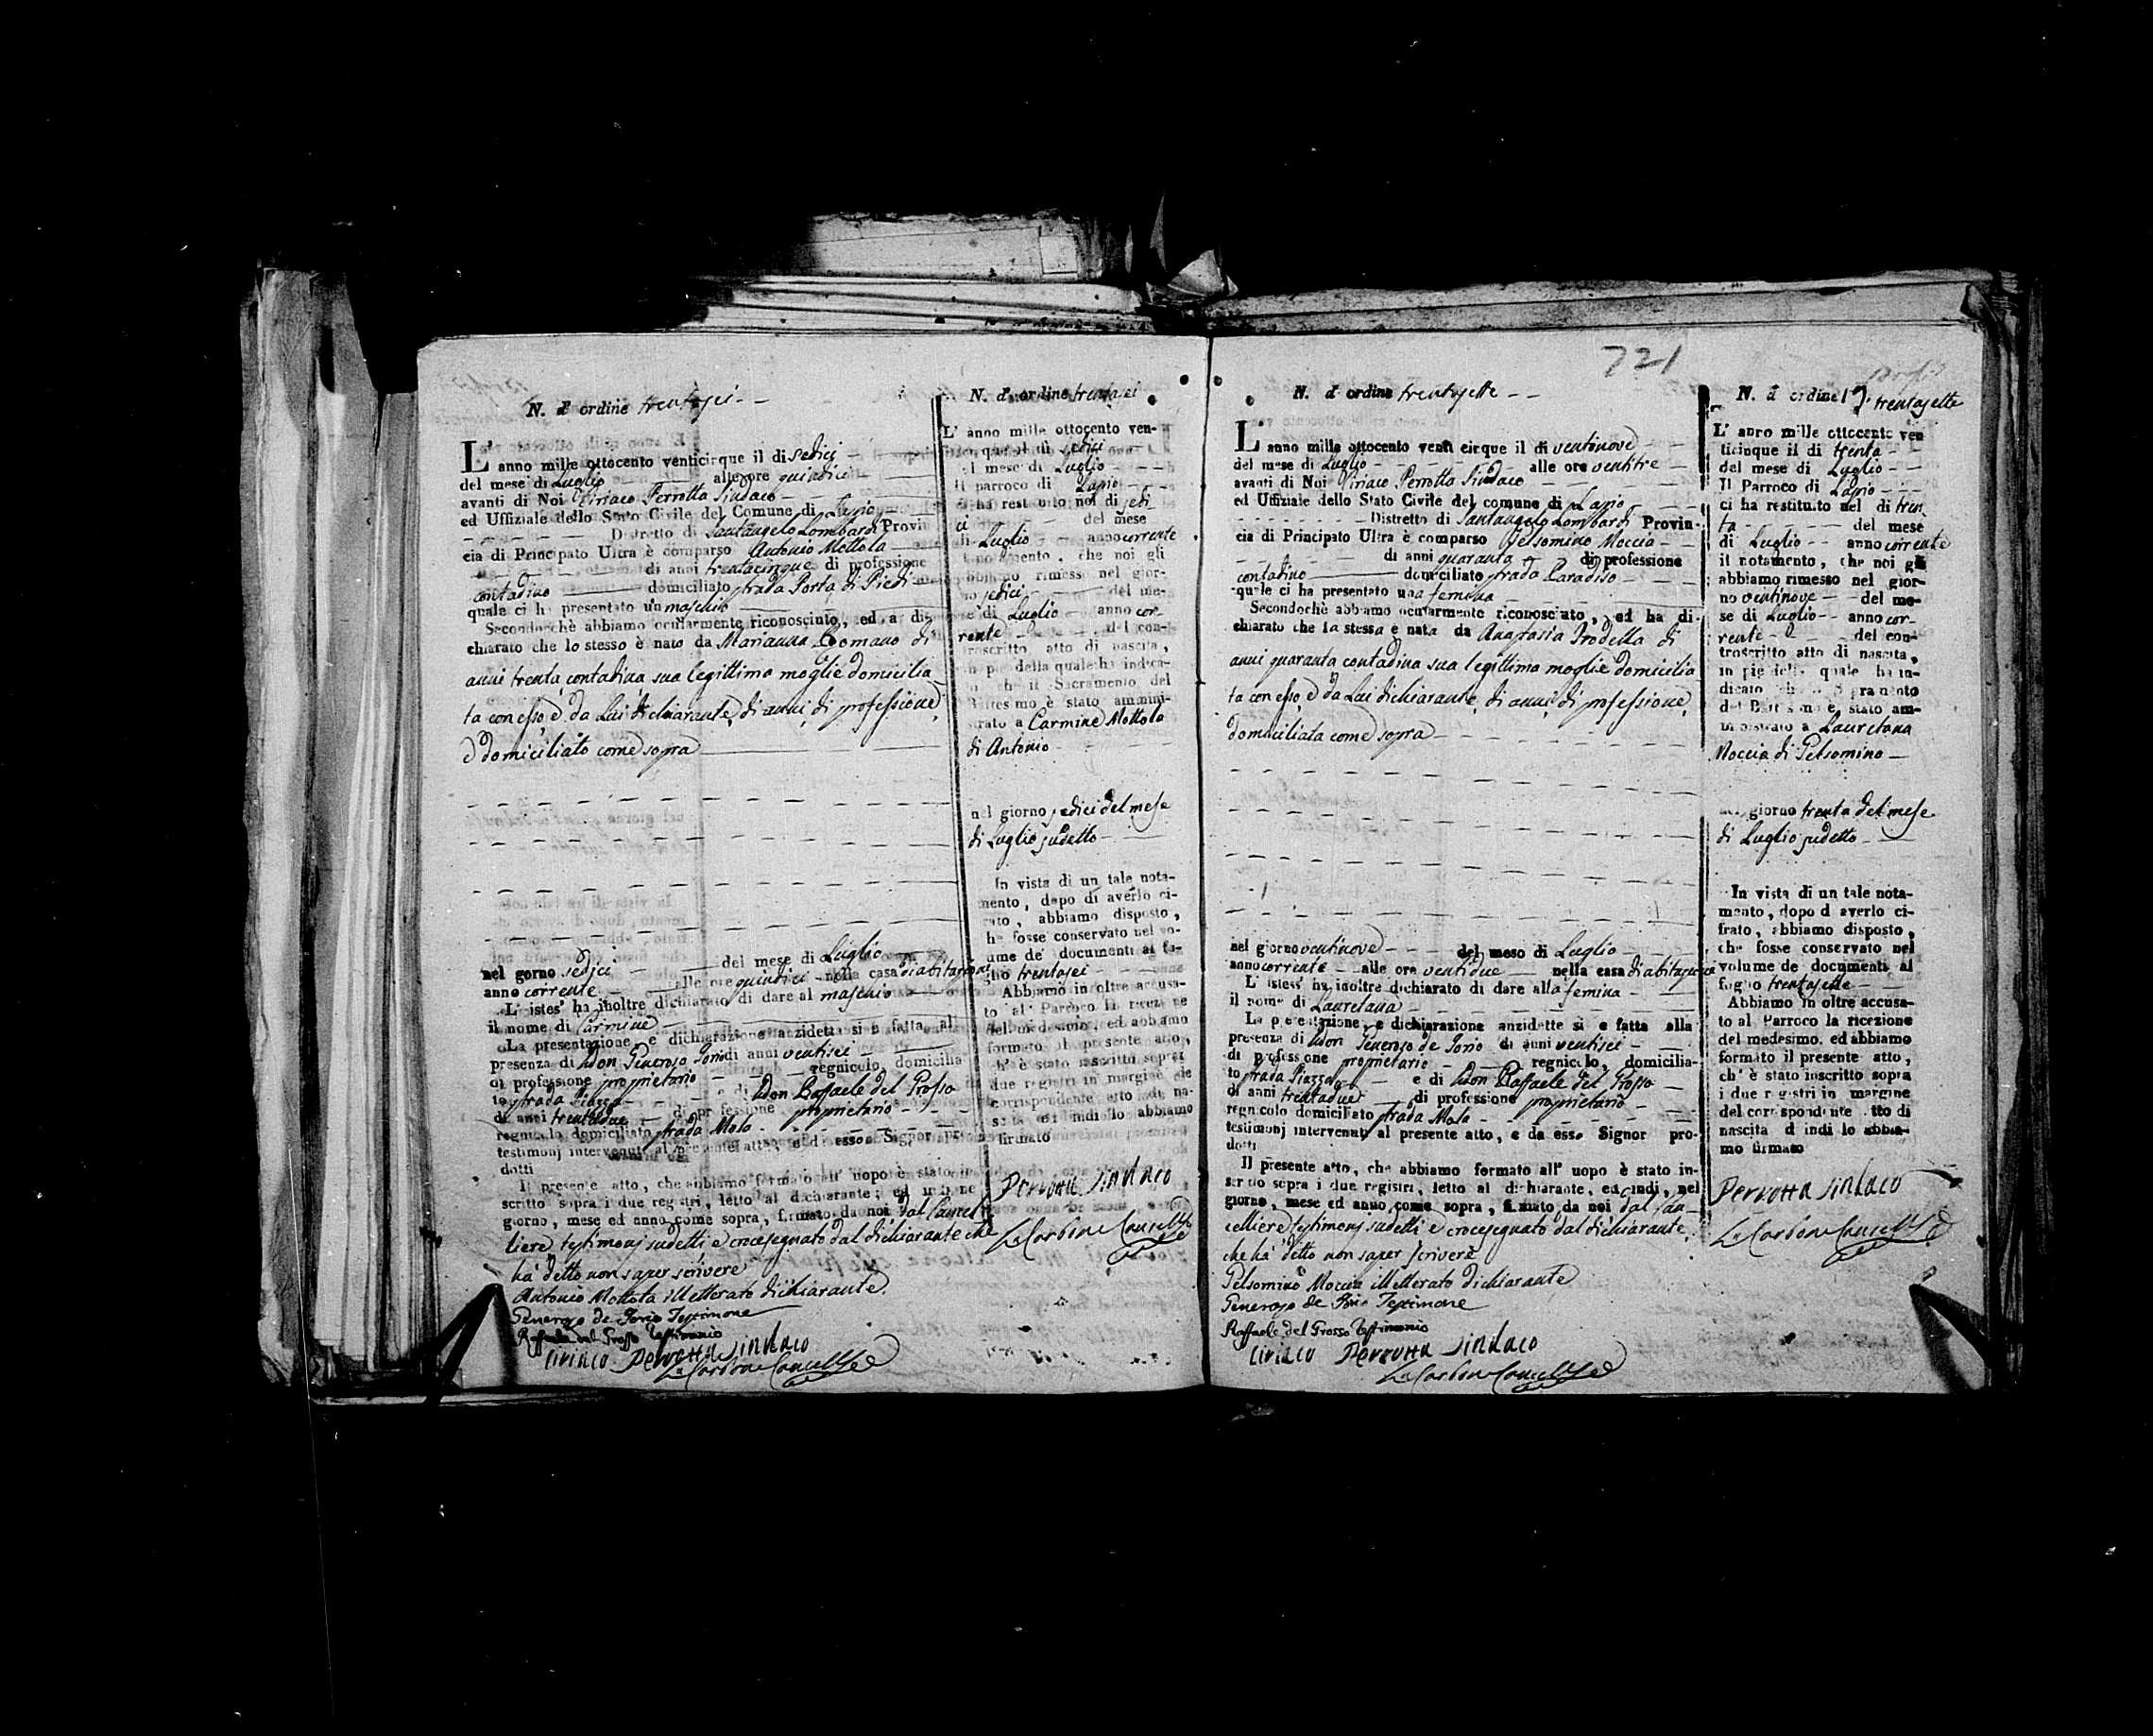 N. d' ordine trentasei
L' anno mille ottocento venticinque il di sedici
del mese di Luglio alle ore quindici
avanti di Noi Ciriaco Perrotta Sindaco
ed Uffiziale dello Stato Civile del Comune di Lapio
Distretto di Santangelo Lombardi Provin
cia di Principato Ultra è comparso Antonio Mottola
di anni trentacinque di professione
contadino domiciliato strada Porta di Piedi
quale ci ha presentato un maschio
Secondochè abbiamo ocularmente riconosciuto, ed a di-
chiarato che lo stesso è nato da Marianna Romano di
anni trenta contadina sua legittima moglie domicilia
ta con esso, e da Lui dichiarante, di anni, di professione,
e domiciliato come sopra
nel gorno sedici del mese di Luglio
anno corrente alle ore quindici nella casa di abitazione
L' istes' ha inoltre dichiarato di dare al maschio
il nome di Carmine
La presentazione, e dichiarazione anzidetta si è fatta al
presenza di Don Generoso Iorio di anni ventisei
di professione proprietario regnicolo, domicilia
to strada Piazza e di Don Raffaele del Grosso
di anni trentadue di professione proprietario
regnicolo domiciliato strada Mola
testimonj intervenuti al presente atto, e d esso Signor pro
dotti
Il presente atto, che abbiamo formato all' uopo è stato in
scritto sopra i due registri, letto al dichiarante, ed indi ne
giorno, mese ed anno come sopra, firmato da noi dal Cancel
liere testimonj sudetti e crocesegnato dal dichiarante che
ha detto non saper scrivere
Antonio Mottola illetterato dichiarante
Generoso de Iorio Testimone
Raffaele del Grosso Testimonio
Ciriaco Perrotta Sindaco
N. d' ordine trentasei
L' anno mille ottocento ven-
que il di sedici
el mese di Luglio
Il parroco di Lapio
ci ha restituito nel di sedi
ci del mese
di Luglio anno corrente
il notamento, che noi gli
abbiamo rimess nel gior-
no sedici del me-
se di Luglio anno cor-
rente del con-
troscritto atto di nascita,
in piè della quale ha indica-
to che il Sacramento del
Battesimo è stato ammini-
strato a Carmine Mottola
di Antonio
nel giorno sedici del mese
di Luglio sudetto
In vista di un tale nota-
mento, dopo di averlo ci-
frato, abbiamo disposto,
he fosse conservato nel vo-
lume de' documenti al fo-
glio trentasei
Abbiamo in oltre accusa-
to al Parroco la ricezione
del medesimo, ed abbiamo
formato il presente atto,
ch' è stato inscritto sopra
i due registri in margine del
corrispondente atto di na-
scita ed indi lo abbiamo
firmato
Perrotta Sindaco
721
N. d' ordine trentasette
L' anno mille ottocento venti cinque il di ventinove
del mese di Luglio alle ore ventitre
avanti di Noi Ciriaco Perrotta Sindaco
ed Uffiziale dello Stato Civile del comune di Lapio
Distretto di Santangelo Lombardi Provin-
cia di Principato Ultra è comparso Gelsomino Moccia
di anni quaranta di professione
contadino domiciliato strada Paradiso
quale ci ha presentato una femina
Secondochè abbiamo ocularmente riconosciato, ed ha di-
chiarato che la stessa è nata da Anastasia Trodella di
anni quaranta contadina sua legittima moglie domicilia
ta con esso, e da Lui dichiarante, di anni, di professione,
domiciliata come sopra
nel giorno ventinove del mese di Luglio
anno corrente alle ore ventidue nella casa di abitazione
L' istess' ha inoltre dichiarato di dare alla femina
il nome di Lauretana
La presentazione, e dichiarazione anzidette si e fatta alla
presenza di Don Generoso de Iorio di anni ventisei
di professione proprietario regnicolo, domicilia-
to strada Piazza e di Don Raffaele del Grosso
di anni trentadue di professione proprietario
regnicolo domiciliato strada Mola
testimonj intervenuti al presente atto, e da esso Signor pro-
dotti
Il presente atto, che abbiamo formato all' uopo è stato in-
serito sopra i due registri, letto al dichiarante, ed indi, nel
giorno, mese ed anno come sopra, firmato da noi dal Can-
celliere testimonj sudetti e crocesegnato dal dichiarante,
che ha detto non saper scrivere
Gelsomino Moccia illetterato dichiarante
Generoso de Iorio Testimone
Raffaele del Grosso Testimonio
Ciriaco Perrotta Sindaco
N. d' ordine trentasette
L' anno mille ottocento ven
ticinque il di trenta
del mese di Luglio
Il Parroco di Lapio
ci ha restituito nel di tren
ta del mese
di Luglio anno corrente
il notamento, che noi gli
abbiamo rimesso nel gior-
no ventinove del me-
se di Luglio anno cor-
rente del con-
troscritto atto di nascita,
in piè della quale ha in-
dicato che il Sagramento
del Battesimo è stato am-
ministrato a Lauretana
Moccia di Gelsomino
nel giorno trenta del mese
di Luglio sudetto
In vista di un tale nota-
mento, dopo d averlo ci-
frato, abbiamo disposto,
che fosse conservato nel
volume de documenti al
foglio trentasette
Abbiamo in oltre accusa-
to al Parroco la ricezione
del medesimo, ed abbiamo
formato il presente atto,
ch' è stato inscritto sopra
i due registri in margine
del corrispondente atto di
nascita d indi lo abbia-
mo firmato
Perrotta Sindaco